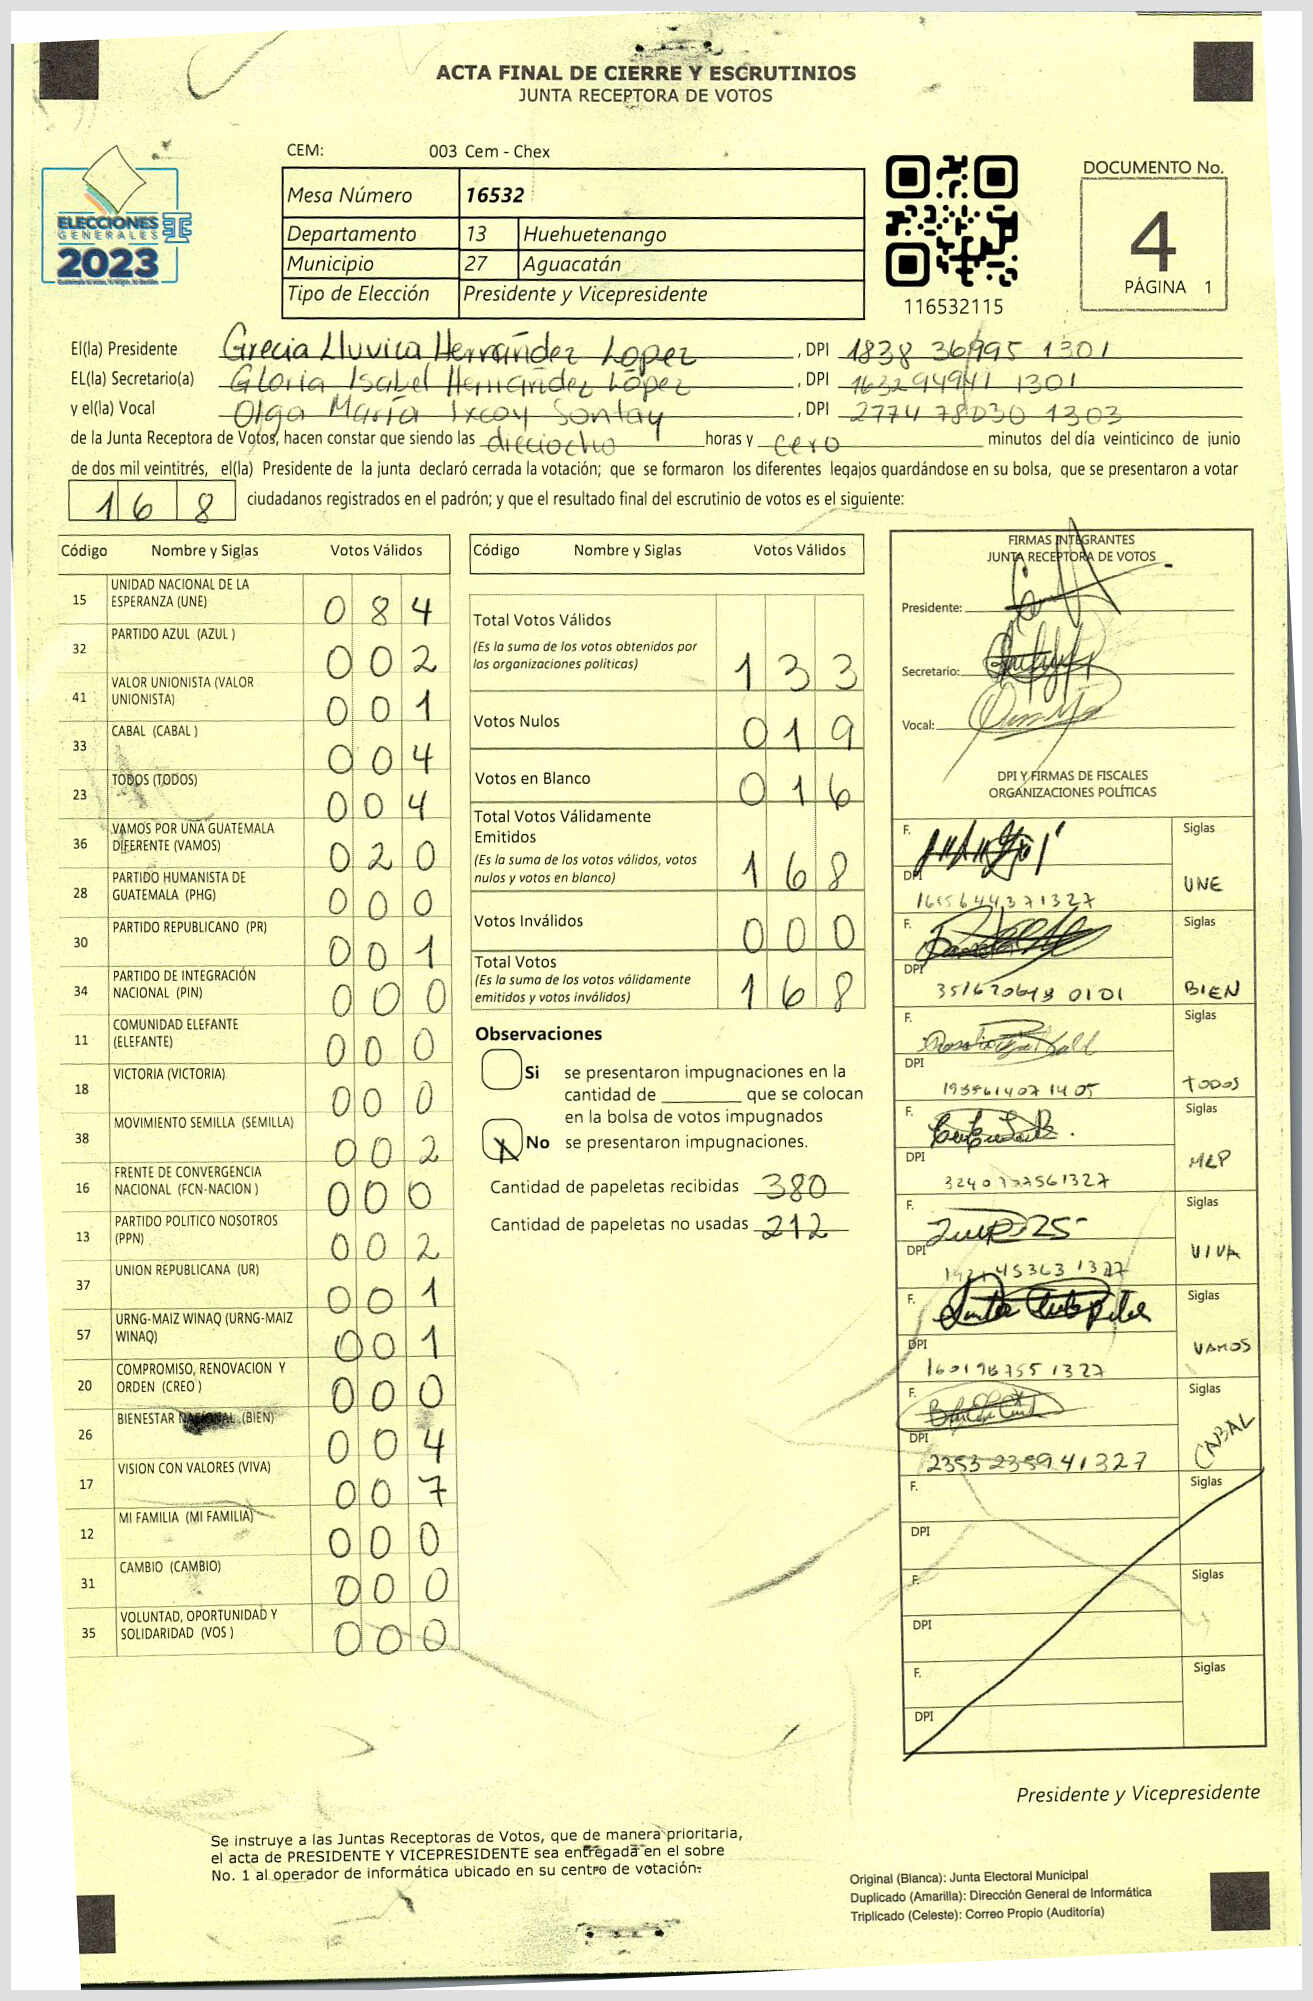 ACTA FINAL DE CIERRE Y ESCRUTINIOS
JUNTA RECEPTORA DE VOTOS
CEM: 003 Cem - Chex
ELECCIONES
GENERALES
2023
TSE
Mesa Número 16532
Departamento 13 Huehuetenango
Municipio 27 Aguacatán
Tipo de Elección Presidente y Vicepresidente
116532115
DOCUMENTO No.
4
PÁGINA 1
El(la) Presidente Grecia Lluvica Hernández Lopez, DPI 1838 36995 1301
EL(la) Secretario(a) Gloria Isabel Hernández López, DPI 163294941 1301
y el(la) Vocal Olga María Ixcoy Sontay, DPI 2774 78030 1303
de la Junta Receptora de Votos, hacen constar que siendo las dieciocho horas y cero minutos del día veinticinco de junio
de dos mil veintitrés, el(la) Presidente de la junta declaró cerrada la votación; que se formaron los diferentes legajos guardándose en su bolsa, que se presentaron a votar
168 ciudadanos registrados en el padrón; y que el resultado final del escrutinio de votos es el siguiente:
Código Nombre y Siglas Votos Válidos
15 UNIDAD NACIONAL DE LA ESPERANZA (UNE) 084
32 PARTIDO AZUL (AZUL ) 002
41 VALOR UNIONISTA (VALOR UNIONISTA) 001
33 CABAL (CABAL ) 004
23 TODOS (TODOS) 004
36 VAMOS POR UNA GUATEMALA DIFERENTE (VAMOS) 020
28 PARTIDO HUMANISTA DE GUATEMALA (PHG) 000
30 PARTIDO REPUBLICANO (PR) 001
34 PARTIDO DE INTEGRACIÓN NACIONAL (PIN) 000
11 COMUNIDAD ELEFANTE (ELEFANTE) 000
18 VICTORIA (VICTORIA) 000
38 MOVIMIENTO SEMILLA (SEMILLA) 002
16 FRENTE DE CONVERGENCIA NACIONAL (FCN-NACION ) 000
13 PARTIDO POLITICO NOSOTROS (PPN) 002
37 UNION REPUBLICANA (UR) 001
57 URNG-MAIZ WINAQ (URNG-MAIZ WINAQ) 001
20 COMPROMISO, RENOVACION Y ORDEN (CREO ) 000
26 BIENESTAR NACIONAL (BIEN) 004
17 VISION CON VALORES (VIVA) 007
12 MI FAMILIA (MI FAMILIA) 000
31 CAMBIO (CAMBIO) 000
35 VOLUNTAD, OPORTUNIDAD Y SOLIDARIDAD (VOS ) 000
Código Nombre y Siglas Votos Válidos
Total Votos Válidos
(Es la suma de los votos obtenidos por
las organizaciones políticas) 133
Votos Nulos 019
Votos en Blanco 016
Total Votos Válidamente
Emitidos
(Es la suma de los votos válidos, votos
nulos y votos en blanco) 168
Votos Inválidos 000
Total Votos
(Es la suma de los votos válidamente
emitidos y votos inválidos) 168
Observaciones
Si se presentaron impugnaciones en la
cantidad de ________ que se colocan
en la bolsa de votos impugnados
X No se presentaron impugnaciones.
Cantidad de papeletas recibidas 380
Cantidad de papeletas no usadas 212
FIRMAS INTEGRANTES
JUNTA RECEPTORA DE VOTOS
Presidente:
Secretario:
Vocal:
DPI Y FIRMAS DE FISCALES
ORGANIZACIONES POLÍTICAS
F. Siglas
DPI UNE
F. Siglas
DPI BIEN
F. Siglas
DPI TODOS
193561407 1405
F. Siglas
DPI MLP
F. Siglas
DPI VIVA
F. Siglas
DPI VAMOS
F. Siglas
DPI CABAL
2353 2359 41327
F. Siglas
DPI
F. Siglas
DPI
F. Siglas
DPI
Presidente y Vicepresidente
Se instruye a las Juntas Receptoras de Votos, que de manera prioritaria,
el acta de PRESIDENTE Y VICEPRESIDENTE sea entregada en el sobre
No. 1 al operador de informática ubicado en su centro de votación.
Original (Blanca): Junta Electoral Municipal
Duplicado (Amarilla): Dirección General de Informática
Triplicado (Celeste): Correo Propio (Auditoría)